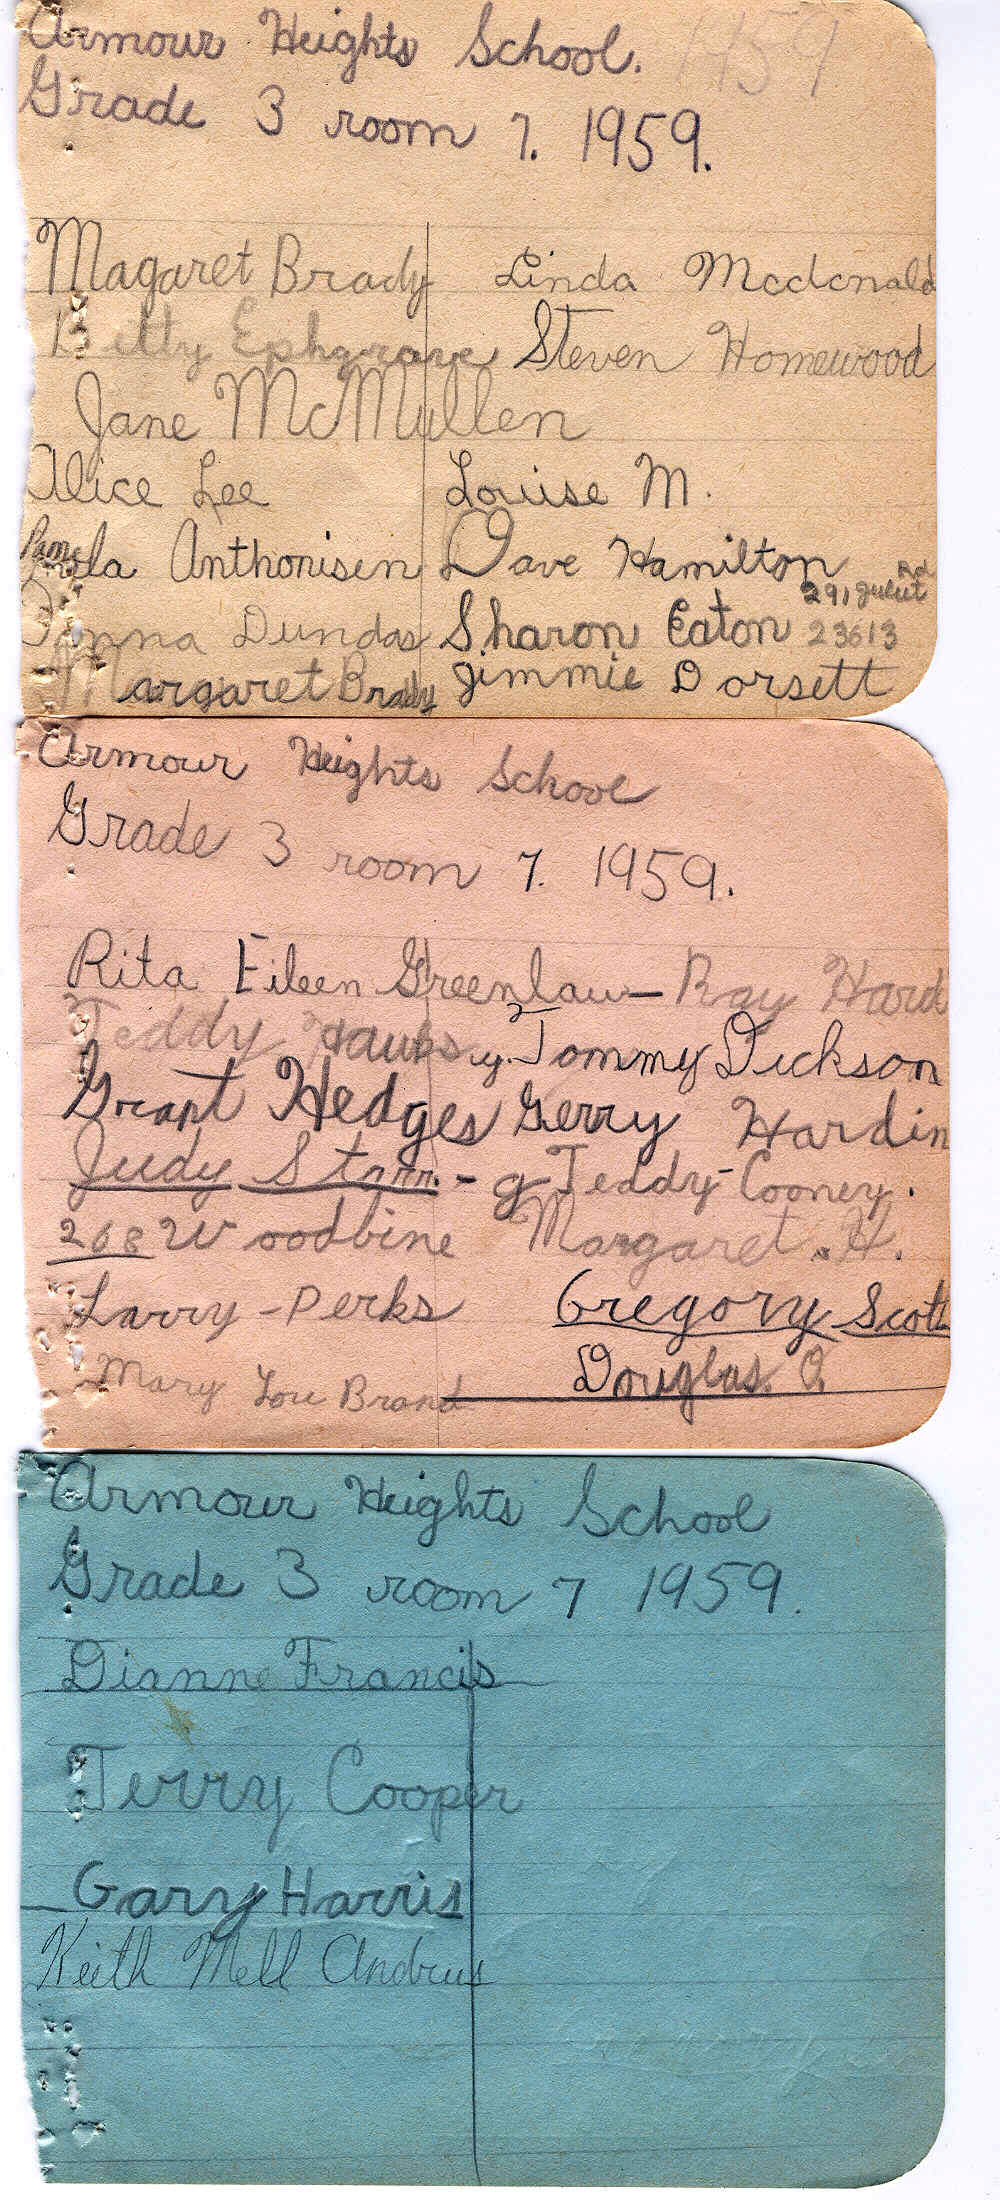 Armour Heights School. 1959
Grade 3 room 7. 1959.
Magaret Brady Linda Mcdonald
Betty Ephgrave Steven Homewood
Jane McMullen
Alice Lee Louise M.
Pamela Anthonisen Dave Hamilton
291 Rd
Donna Dundas Sharon Eaton 23613
Margaret Brady Jimmie Dorsett
Armour Heights School
Grade 3 room 7. 1959.
Rita Eileen Greenlaw - Ray Hard
Teddy y. Tommy Dickson
Grant Hedges Gerry Hardin
Judy Starr - g Teddy - Cooney.
268 Woodbine Margaret. H.
Larry - Perks Gregory Scott
Mary Lou Brand Douglas. O.
Armour Heights School
Grade 3 room 7 1959.
Dianne Francis
Terry Cooper
Gary Harris
Keith Mell Andrus